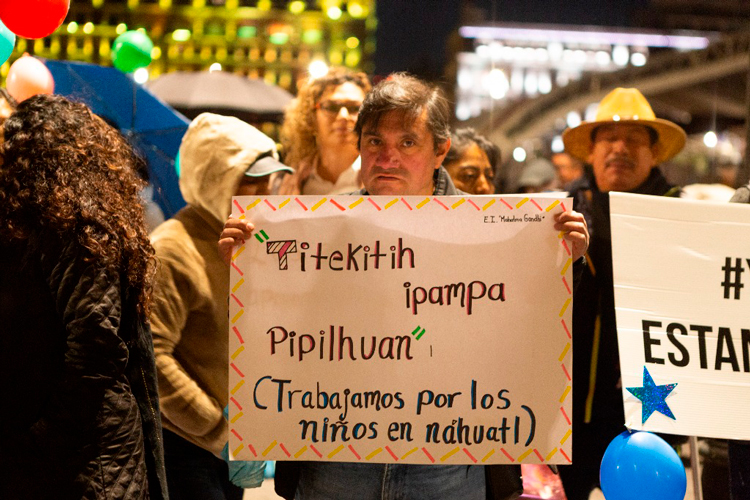 E.I. "Mahatma Gandhi"
"Titekitih
ipampa
Pipilhuan"
(Trabajamos por los
niños en náhuatl)
#Y
ESTAN